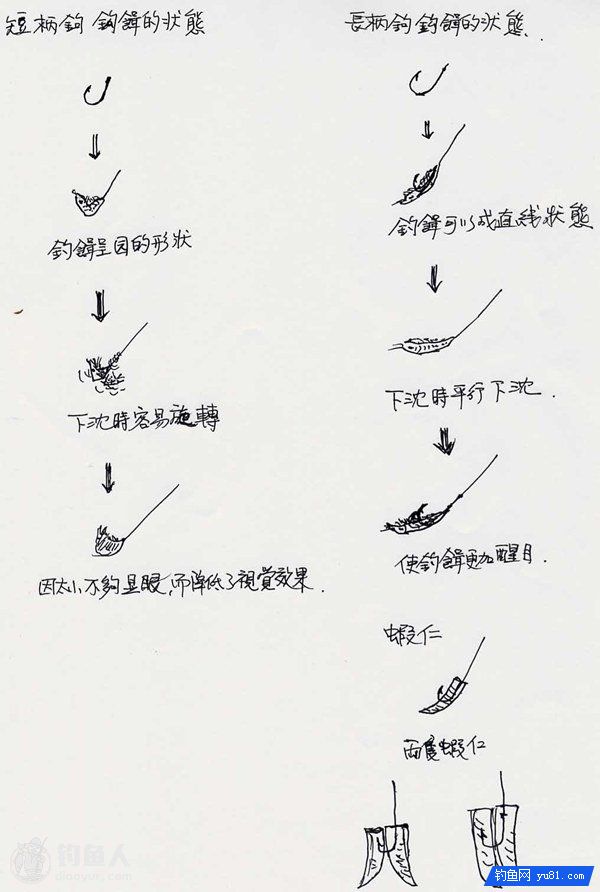 短柄鉤 釣餌的状態
釣餌呈园的形狀
下沈時容易旋轉
因太小不夠显眼,而降低了視覚效果.
長柄鉤 釣餌的状態.
釣餌可以成直线狀態
下沈時平行下沈.
使釣餌更加醒目.
蝦仁
両隻蝦仁
钓鱼人
diaoyur.com
钓鱼网 yu81.com